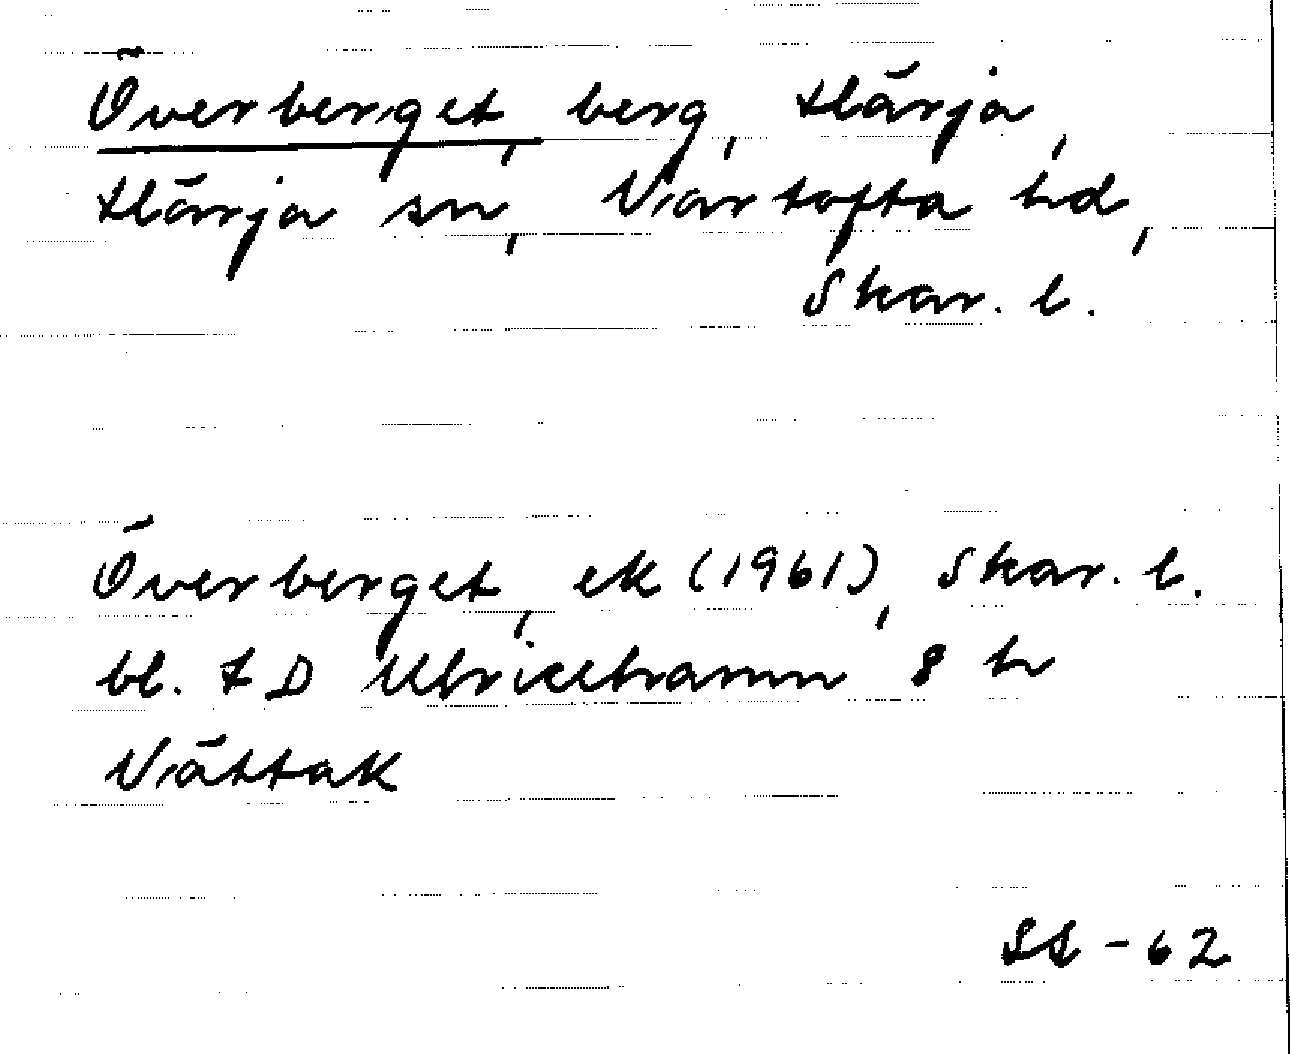 Överberget, berg, Härja,
Härja sn, Vartofta hd,
Skar. l.
Överberget, ek (1961), Skar. l.
bl. 7 D Ulricehamn 8 h
Vättak
SL - 62